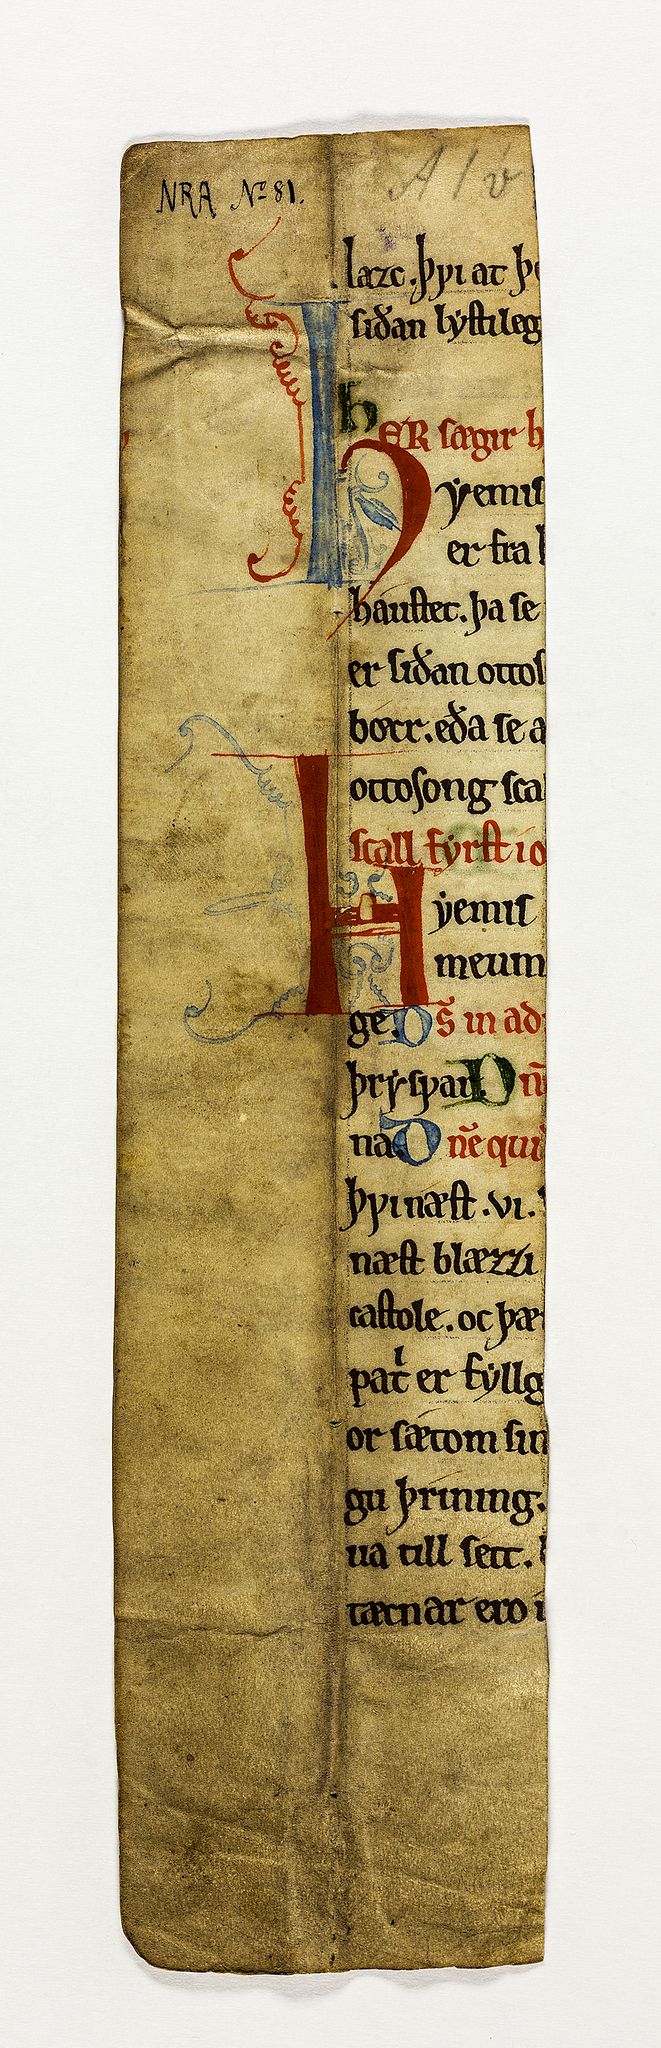 NRA No 81.
A 1 v
læzc. þui at þe
siðan lystileg
hER sægir h
Hyemis
er fra
haustet. þa se
er siðan ottos
bocc. eða se a
ottosong sca
scall fyrst io
Hyemis
meum
ge. Ds in ad
þrysuar Dn
na Dne qui
þui næst .vi.
næst blæzzi
castole. oc þæ
pat er fyllg
or sætom sin
gu þrining.
ua till sett.
tæcnar ero i